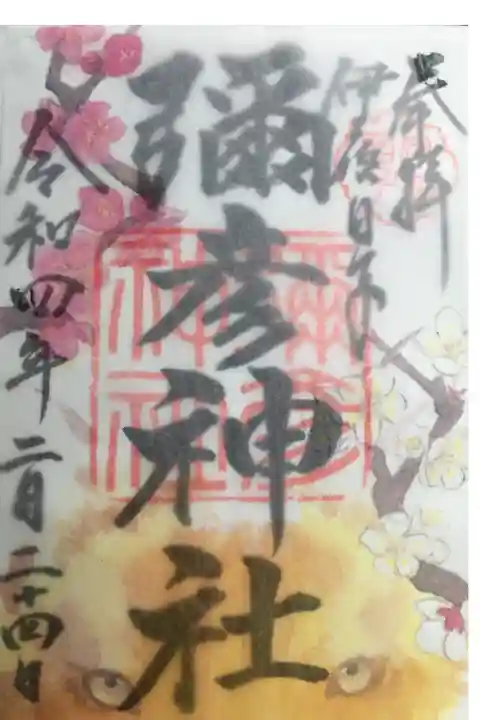 奉拝
彌彦神社
彌彦
神社
令和四年二月二十四日